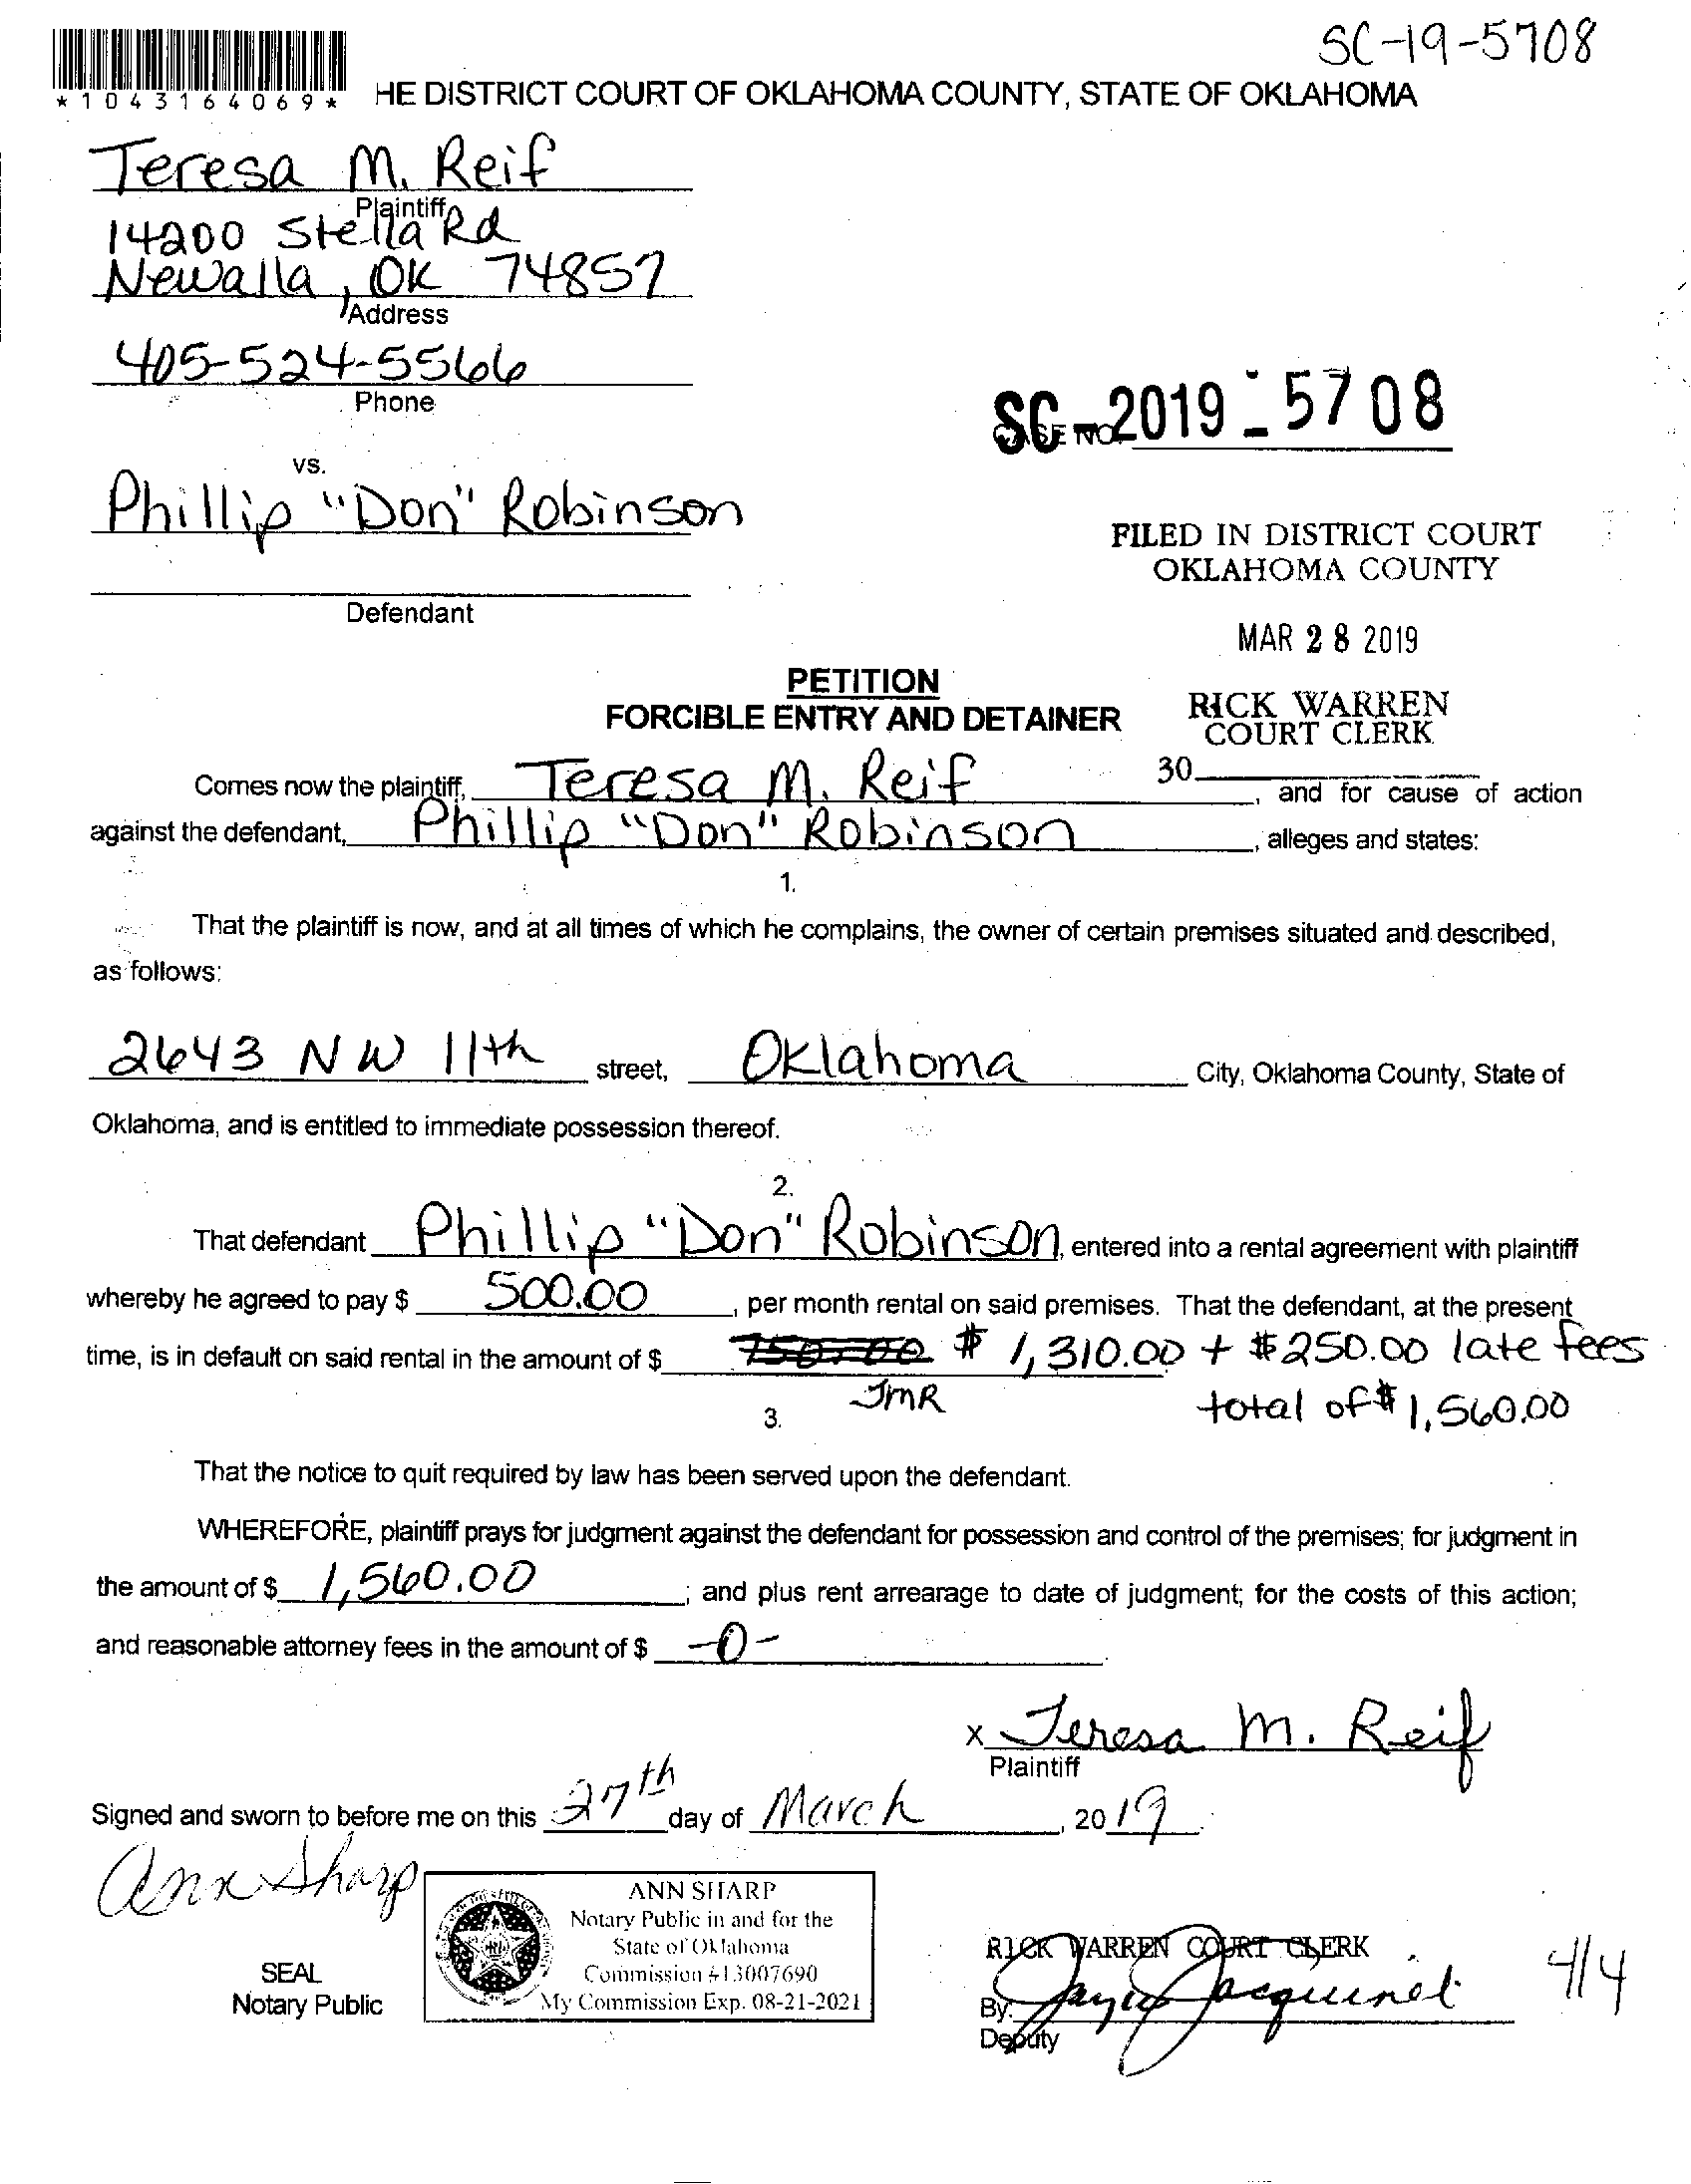 SC-19-5708
*1043164069*
HE DISTRICT COURT OF OKLAHOMA COUNTY, STATE OF OKLAHOMA
Teresa M. Reif
Plaintiff
14200 Stella Rd
Newalla, OK 74857
Address
405-524-5566
Phone
SC-2019-5708
CASE NO.
vs.
Phillip "Don" Robinson
Defendant
FILED IN DISTRICT COURT
OKLAHOMA COUNTY
MAR 28 2019
RICK WARREN
COURT CLERK
30
PETITION
FORCIBLE ENTRY AND DETAINER
Comes now the plaintiff, Teresa M. Reif, and for cause of action
against the defendant, Phillip "Don" Robinson, alleges and states:
1.
That the plaintiff is now, and at all times of which he complains, the owner of certain premises situated and described,
as follows:
2643 NW 11th street, Oklahoma City, Oklahoma County, State of
Oklahoma, and is entitled to immediate possession thereof.
2.
That defendant Phillip "Don" Robinson, entered into a rental agreement with plaintiff
whereby he agreed to pay $ 500.00, per month rental on said premises. That the defendant, at the present
time, is in default on said rental in the amount of $ 750.00 $ 1,310.00 + $250.00 late fees
TMR total of $ 1,560.00
3.
That the notice to quit required by law has been served upon the defendant.
WHEREFORE, plaintiff prays for judgment against the defendant for possession and control of the premises; for judgment in
the amount of $ 1,560.00; and plus rent arrearage to date of judgment; for the costs of this action;
and reasonable attorney fees in the amount of $ -0-.
x Teresa M. Reif
Plaintiff
Signed and sworn to before me on this 27th day of March, 2019.
Ann Sharp
SEAL
Notary Public
ANN SHARP
Notary Public in and for the
State of Oklahoma
Commission #13007690
My Commission Exp. 08-21-2021
RICK WARREN COURT CLERK
By:
Deputy
4/4